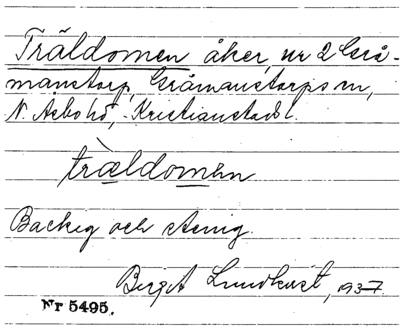 Träldomen åker, nr 2 Grå-
manstorp, Gråmanstorps sn,
N. Åsbo hd, Kristianstads l.
trældomen
Backig och stenig.
Birgit Lundkvist, 1937
Nr 5495.